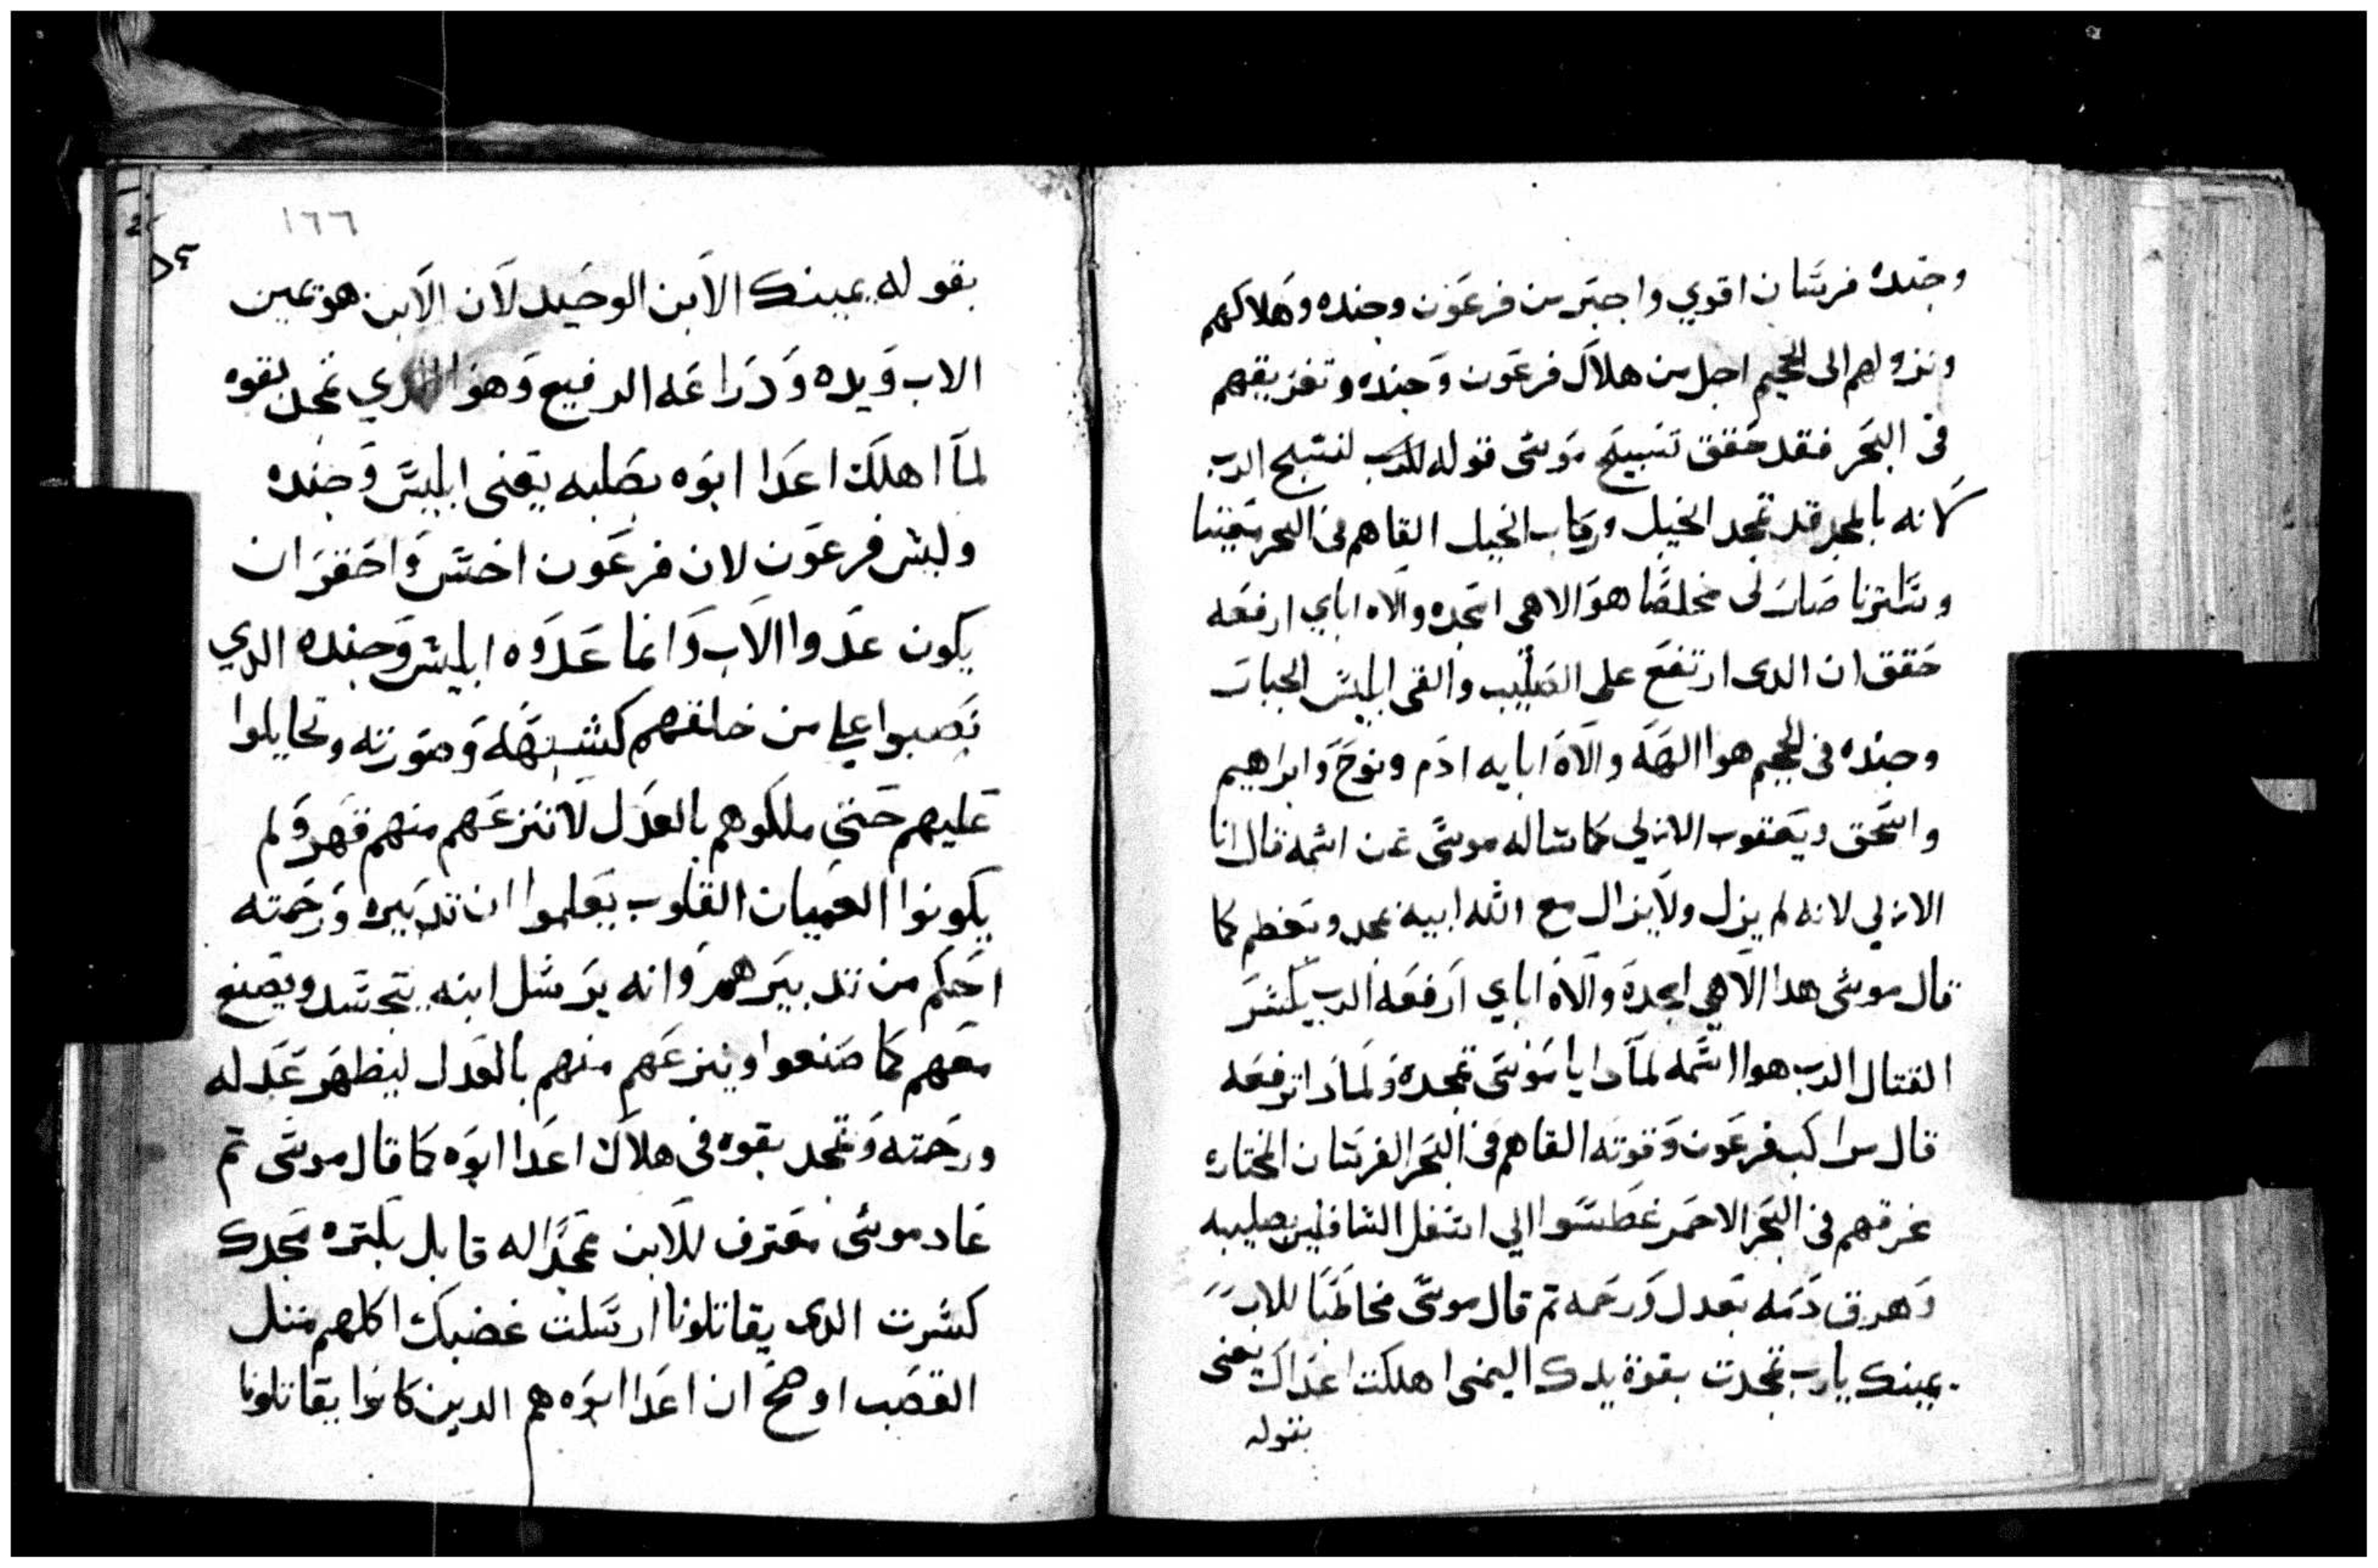 وجنده فرسان اقوي واجبر من فرعون وجنده وهلاكهم
ونزولهم الى الجحيم اجل من هلاك فرعون وجنده وتغريقهم
فى البحر فقد حقق تسبيح موسى قوله للرب لنسبح الرب
لانه بالمجد قد تمجد الخيل وركاب الخيل القاهم فى البحر معيننا
وساترنا صار لى مخلصا هو الاهى امجده والاه اباي ارفعه
حقق ان الدى ارتفع على الصليب والقى ابليس الجبار
وجنده فى الجحيم هوا الهه والاه ابايه ادم ونوح وابراهيم
واسحق ويعقوب الازلي كما ساله موسى عن اسمه قال انا
الازلي لانه لم يزل ولا يزال مع الله ابيه بمجد وتعظم كما
قال موسى هدا الاهي امجده والاه اباي ارفعه الرب يكسر
القتال الرب هوا اسمه لمادا يا موسى تمجده ولمادا ترفعه
قال مراكب فرعون وقوته القاهم فى البحر الفرسان المختاره
غرقهم فى البحر الاحمر غطسوا الي اسفل السافلين بصليبه
وهرق دمه بعدل ورحمه تم قال موسى مخاطبا للاب
يمينك يارب تمجدت بقوة يدك اليمنى اهلكت اعداك يعنى
بقوله
١٦٦
بقوله يمينك الابن الوحيد لان الابن هو يمين
الاب ويده ودراعه الرفيع وهوا الدي تمجد بقوه
لما اهلك اعدا ابوه بصلبه يعنى ابليس وجنده
وليس فرعون لان فرعون اخس واحقر ان
يكون عدوا الاب وانما عدوه ابليس وجنده الدي
نصبوا علي من خلقهم كشبهه وصورته وتحايلوا
عليهم حتي ملكوهم بالعدل لا تنزعهم منهم قهر ولم
يكونوا العميان القلوب يعلموا ان تدبيره ورحمته
احكم من تدبيرهم وانه يرسل ابنه يتجسد ويصنع
معهم كما صنعوا وينزعهم منهم بالعدل ليظهر عدله
ورحمته وتمجد بقوه فى هلاك اعدا ابوه كما قال موسى تم
عاد موسى معترف للابن بمجدا له قايل بكتره مجدك
كسرت الدى يقاتلونا ارسلت غضبك اكلهم متل
القصب اوضح ان اعدا ابوه هم الدين كانوا يقاتلونا